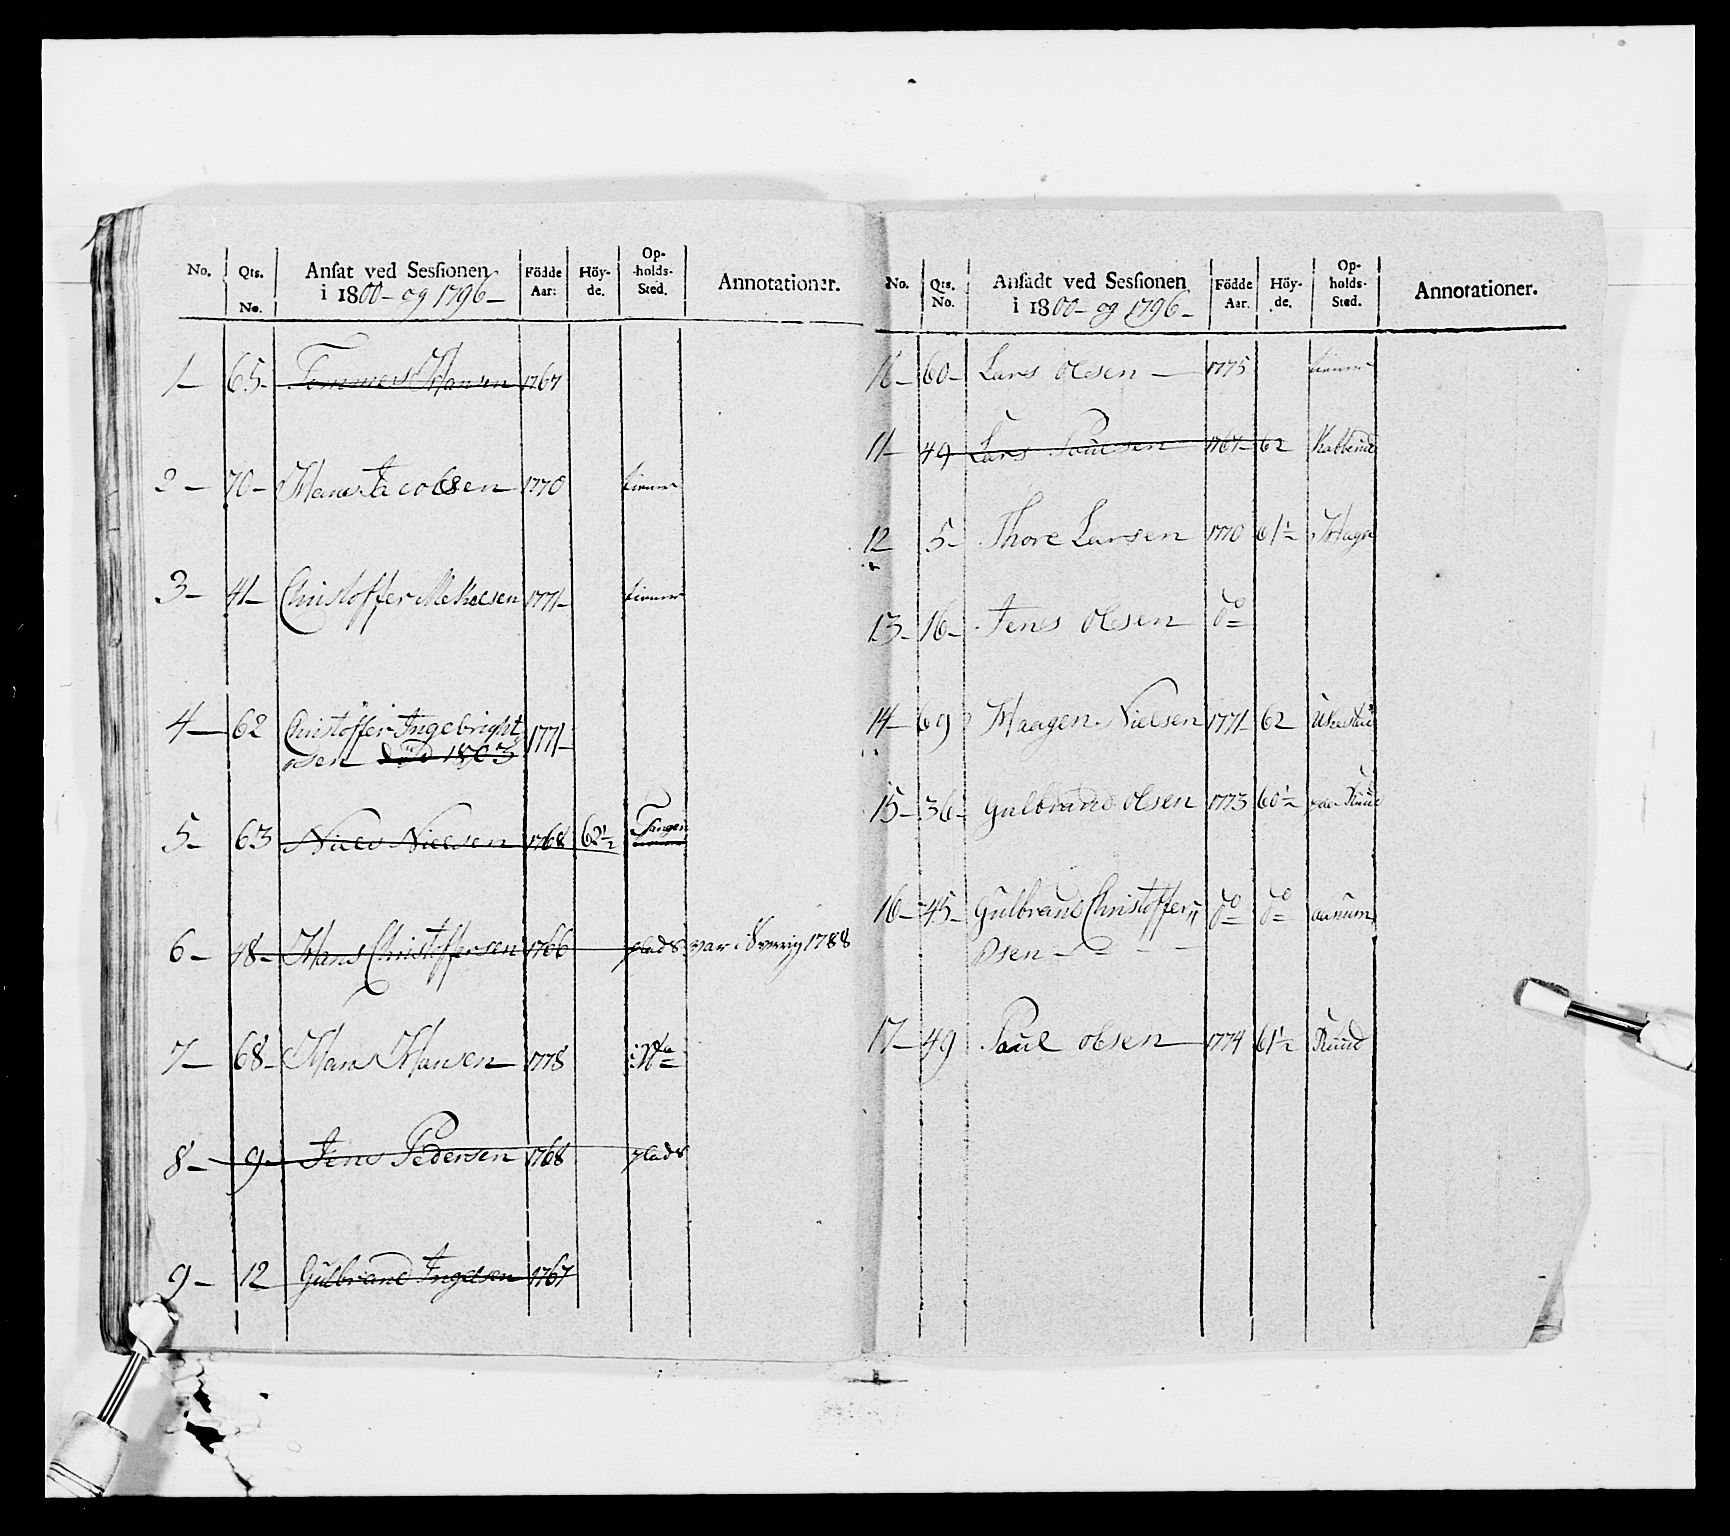 No. Qts. No. Ansat ved Sessionen i 1800- og 1796- Födde Aar: Höy-de. Op-holds-Sted. Annotationer.
1- 65- Tommes Hansen 1767
2- 70- Hans Jacobsen 1770
3- 41- Christoffer Mekelsen 1771-
4- 62 Christoffer Ingebright
osen död 1803 1771-
5- 63 Niels Nielsen 1768 62½ Tangen
6- 48- Hans Christoffersen 1766 plads var i Sverrig 1788
7- 68- Hans Hansen 1778
8- 9- Jens Pedersen 1768 plads
9- 12 Gulbrand Ingelsen 1767
No. Qts. No. Ansadt ved Sessionen i 1800- og 1796- Födde Aar. Höy-de. Op-holds-Sted. Annotationer.
10- 60- Lars Olsen- 1775
11- 49 Lars Poulsen 1767- 62
12 5- Thore Larsen 1770 61½ Hagen
13- 16- Jens Olsen do
14- 69 Haagen Nielsen 1771- 62
15- 36- Gulbrand Olsen 1773 60½
16- 45- Gulbrand Christoffer„ do do
Osen
17- 49 Poul Olsen 1774 61½ Ruud